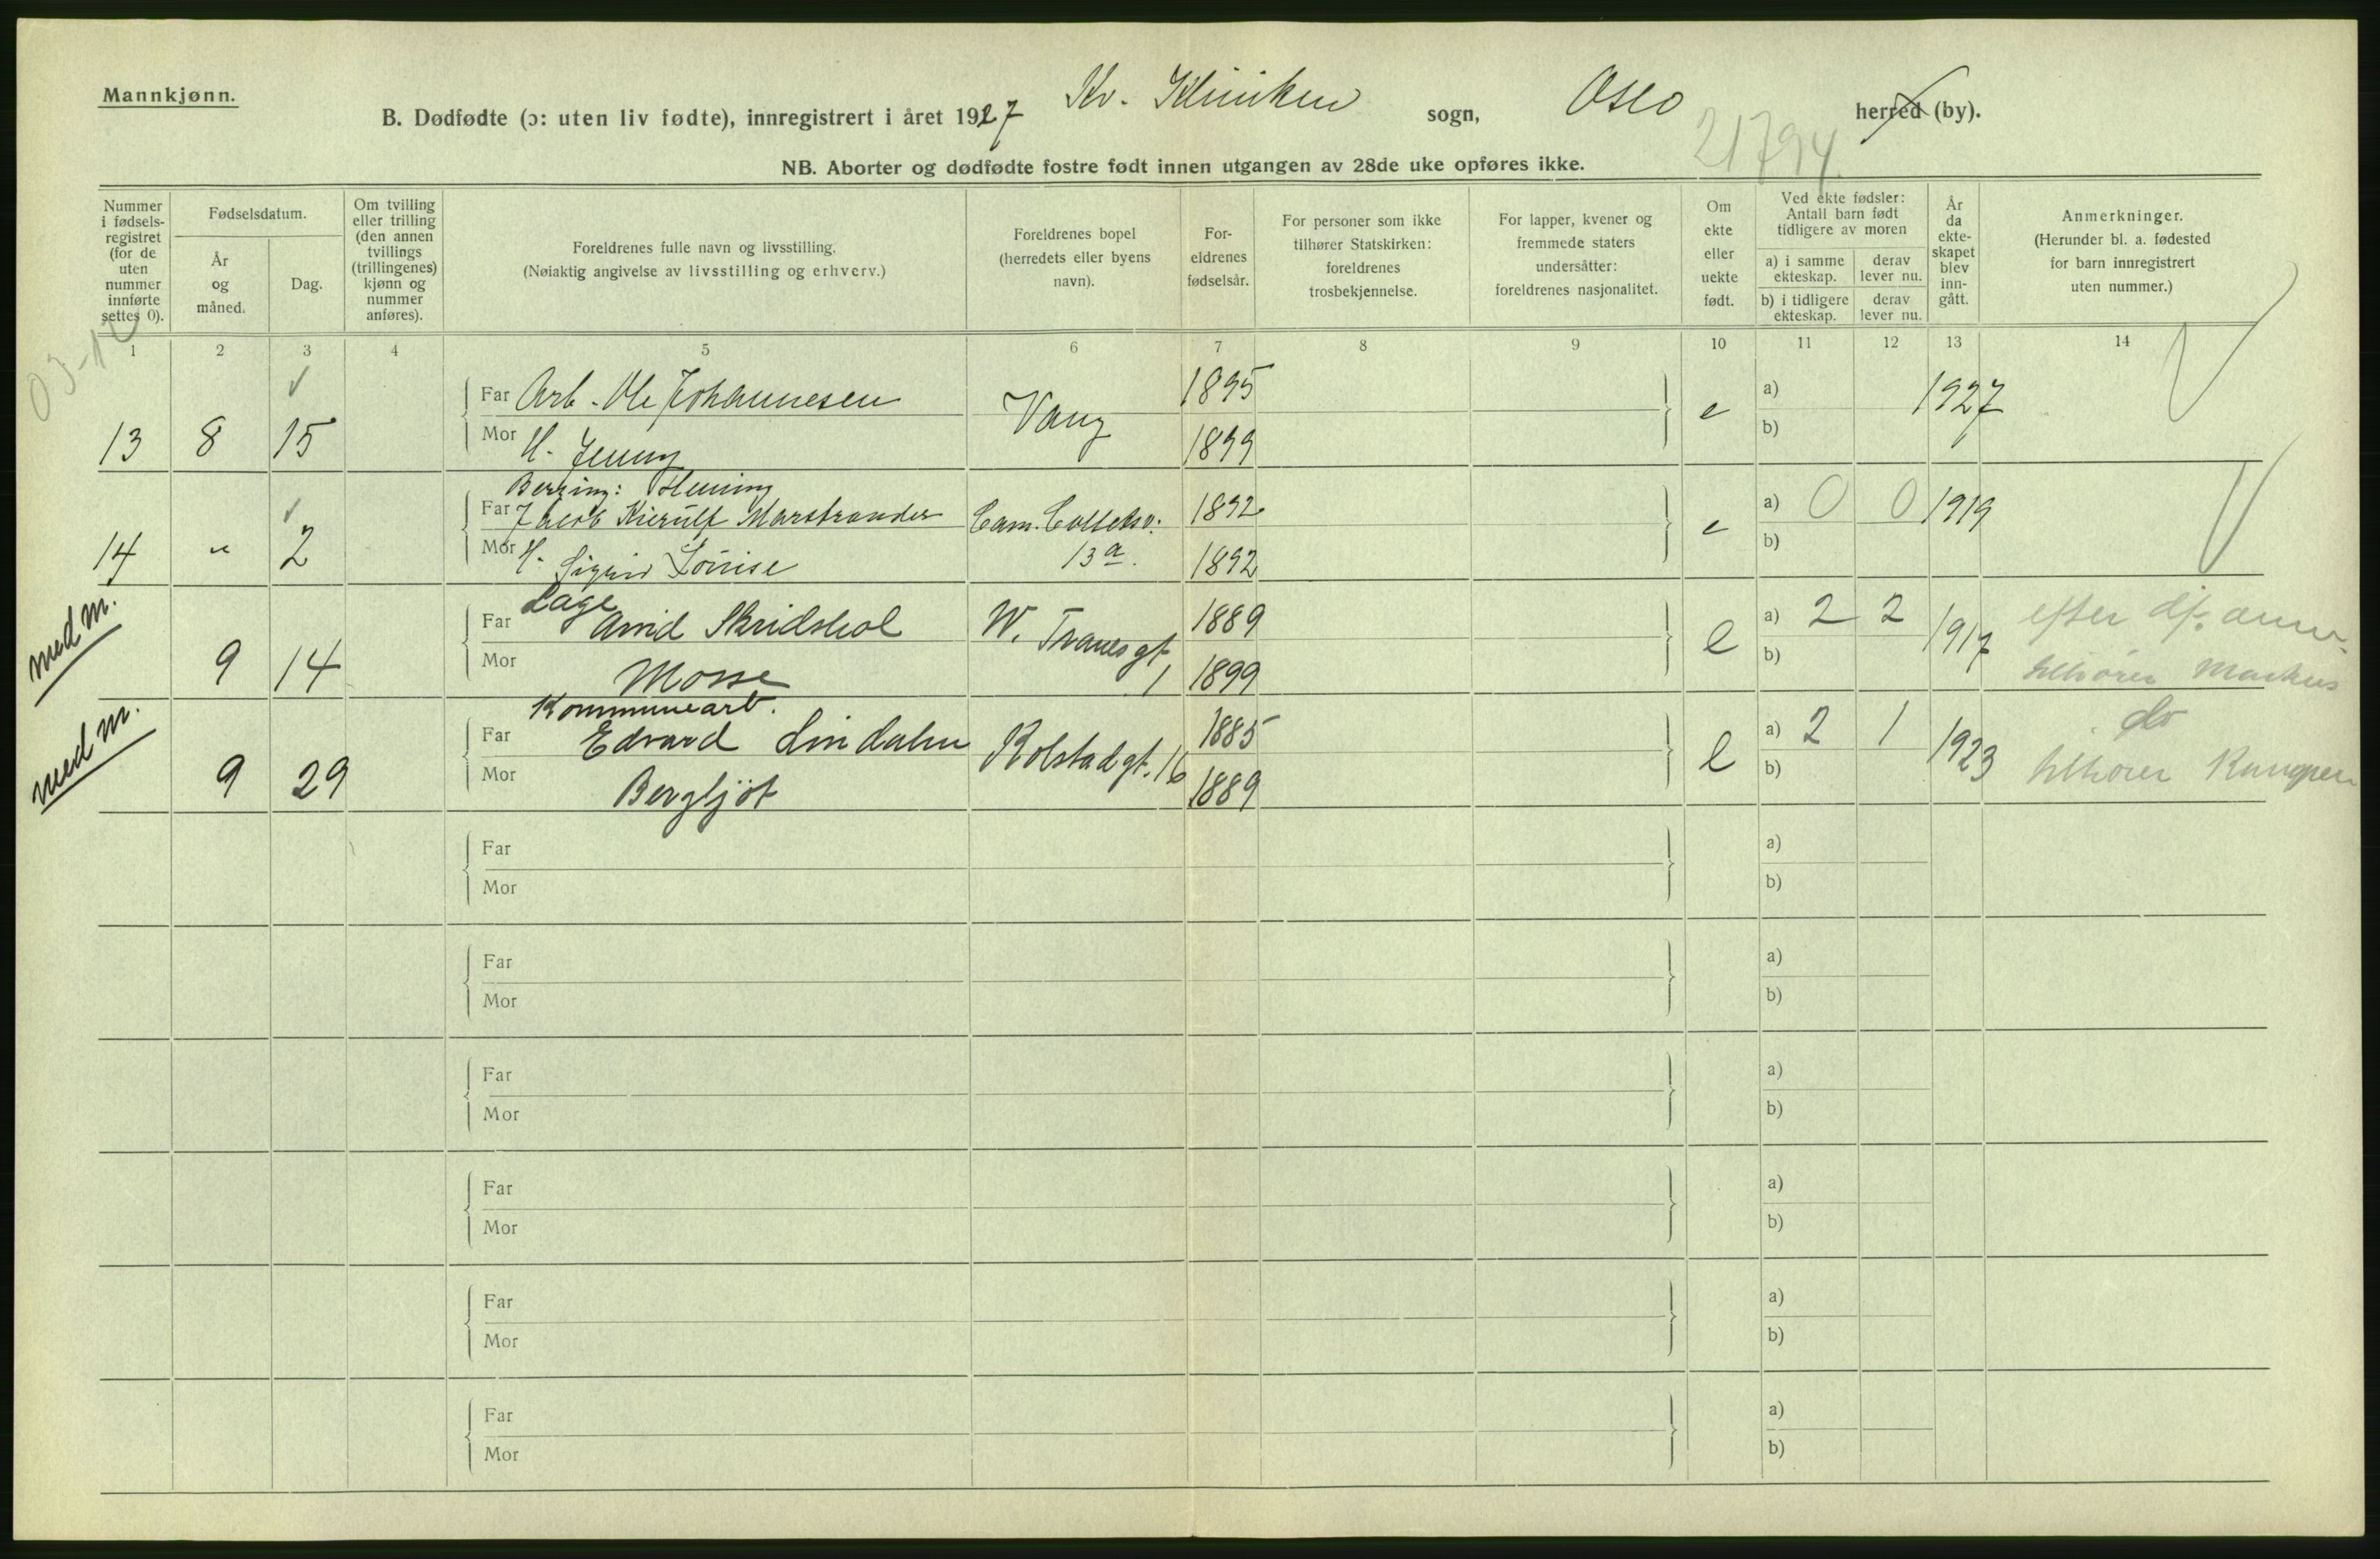 Mannkjønn.
B. Dødfødte (ɔ: uten liv fødte), innregistrert i året 1927 Kv. Kliniken sogn, Oslo herred (by).
21794
NB. Aborter og dødfødte fostre født innen utgangen av 28de uke opføres ikke.
Nummer i fødsels-registret (for de uten nummer innførte settes 0).
Fødselsdatum.
År og måned.
Dag.
Om tvilling eller trilling (den annen tvillings (trillingenes) kjønn og nummer anføres).
Foreldrenes fulle navn og livsstilling.
(Nøiaktig angivelse av livsstilling og erhverv.)
Foreldrenes bopel (herredets eller byens navn).
For-eldrenes fødselsår.
For personer som ikke tilhører Statskirken: foreldrenes trosbekjennelse.
For lapper, kvener og fremmede staters undersåtter: foreldrenes nasjonalitet.
Om ekte eller uekte født.
Ved ekte fødsler: Antall barn født tidligere av moren
a) i samme ekteskap.
derav lever nu.
b) i tidligere ekteskap.
derav lever nu.
År da ekte-skapet blev inn-gått.
Anmerkninger.
(Herunder bl. a. fødested for barn innregistrert uten nummer.)
1 2 3 4 5 6 7 8 9 10 11 12 13 14
13 8 15 Far Arb. Ole Johannesen Vang 1895 e a) 1927
Mor H. Jenny 1899 b)
Henning
14 " 2 Far Jacob Kierulf Marstrander Cam. Collettsv. 1892 e a) 0 0 1919
Mor H. Sigrid Louise 13a. 1892 b)
med m.
Lage
9 14 Far Arvid Skridshol W. Tranes gt 1 1889 e a) 2 2 1917 efter df. anm.
Mor Mosse 1899 b) tilhører Markus
med m.
Kommunearb.
9 29 Far Edvard Lindahn Kolstadgt. 16 1885 e a) 2 1 1923 do
Mor Bergljot 1889 b) tilhører Kampen
Far a)
Mor b)
Far a)
Mor b)
Far a)
Mor b)
Far a)
Mor b)
Far a)
Mor b)
Far a)
Mor b)